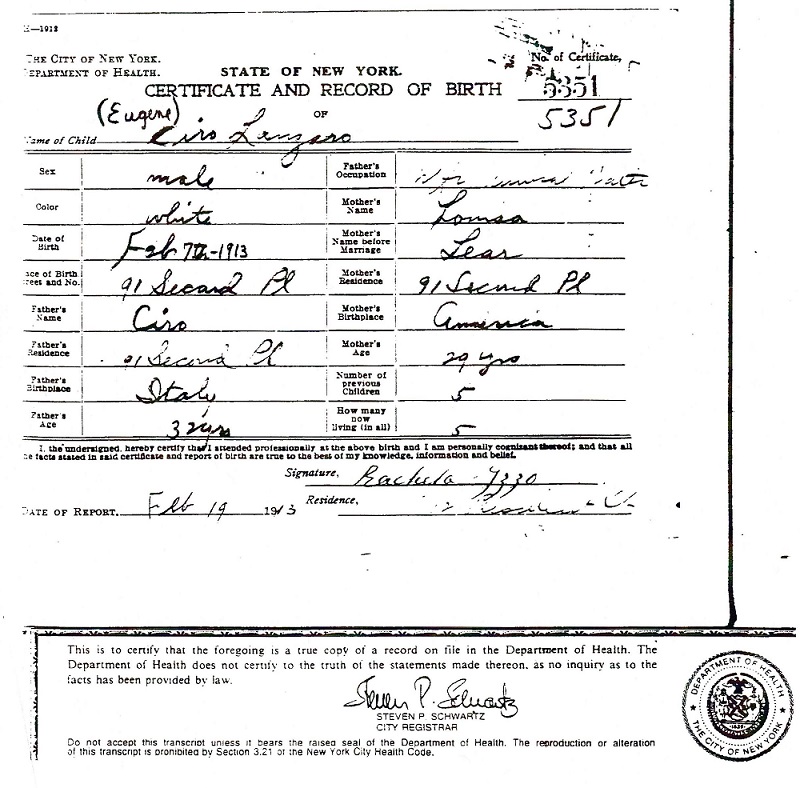 —1913
THE CITY OF NEW YORK.
DEPARTMENT OF HEALTH.
STATE OF NEW YORK.
No. of Certificate,
5351
CERTIFICATE AND RECORD OF BIRTH
5351
(Eugene)
OF
Name of Child Ciro Lenzaro
Sex male
Father's Occupation
Color white
Mother's Name Louisa
Date of Birth Feb 7th-1913
Mother's Name before Marriage Lear
ace of Birth rees and No. 91 Second Pl
Mother's Residence 91 Second Pl
Father's Name Ciro
Mother's Birthplace America
Father's Residence 91 Second Pl
Mother's Age 29 yrs
Father's Birthplace Italy
Number of previous Children 5
Father's Age 32 yrs
How many now living (in all) 5
I, the undersigned, hereby certify that I attended professionally at the above birth and I am personally cognisant thereof; and that all
he facts stated in said certificate and report of birth are true to the best of my knowledge, information and belief.
Signature,
DATE OF REPORT. Feb 19 1913 Residence,
This is to certify that the foregoing is a true copy of a record on file in the Department of Health. The
Department of Health does not certify to the truth of the statements made thereon, as no inquiry as to the
facts has been provided by law.
Steven P. Schwartz
STEVEN P. SCHWARTZ
CITY REGISTRAR
Do not accept this transcript unless it bears the raised seal of the Department of Health. The reproduction or alteration
of this transcript is prohibited by Section 3.21 of the New York City Health Code.
DEPARTMENT OF HEALTH
THE CITY OF NEW YORK